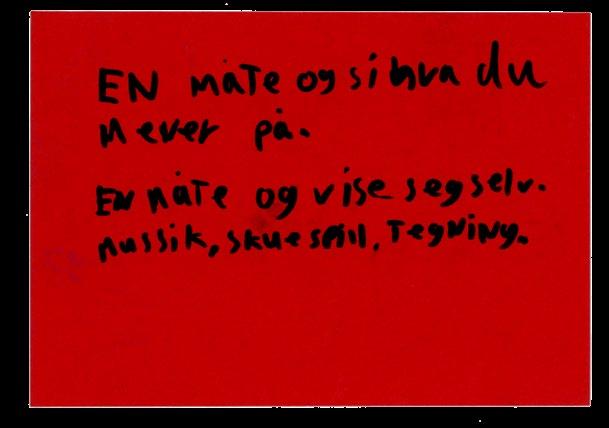 EN måTe og si hva du
mener på.
EN måTe og vise seg selv.
mussik, skuespill, Tegning.